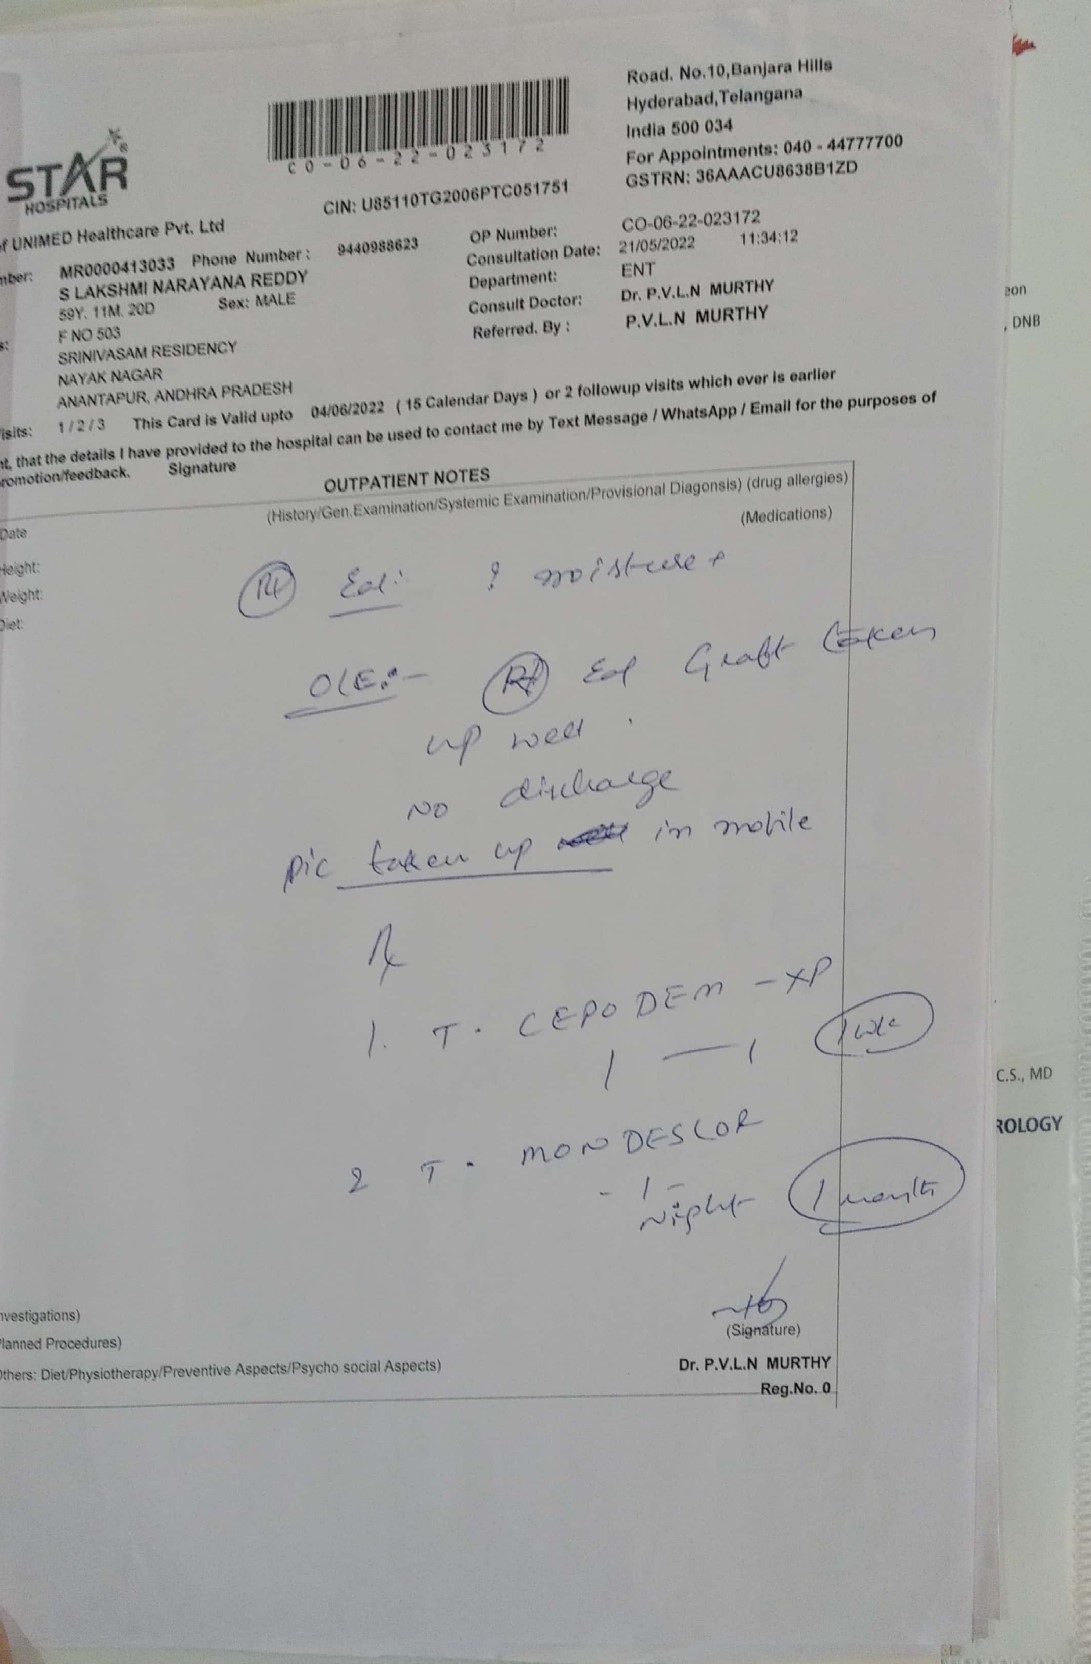 Road. No.10,Banjara Hills
Hyderabad,Telangana
India 500 034
For Appointments: 040 - 44777700
GSTRN: 36AAACU8638B1ZD
CO-06-22-023172
STAR
HOSPITALS
CIN: U85110TG2006PTC051751
f UNIMED Healthcare Pvt. Ltd
mber: MR0000413033 Phone Number : 9440988623
S LAKSHMI NARAYANA REDDY
59Y. 11M. 20D Sex: MALE
s: F NO 503
SRINIVASAM RESIDENCY
NAYAK NAGAR
ANANTAPUR, ANDHRA PRADESH
OP Number: CO-06-22-023172
Consultation Date: 21/05/2022 11:34:12
Department: ENT
Consult Doctor: Dr. P.V.L.N MURTHY
Referred. By : P.V.L.N MURTHY
isits: 1 / 2 / 3 This Card is Valid upto 04/06/2022 ( 15 Calendar Days ) or 2 followup visits which ever is earlier
nt, that the details I have provided to the hospital can be used to contact me by Text Message / WhatsApp / Email for the purposes of
romotion/feedback. Signature
OUTPATIENT NOTES
(History/Gen.Examination/Systemic Examination/Provisional Diagonsis) (drug allergies)
(Medications)
Date
Height:
Weight:
Diet:
Rt Ear: ? moisture +
O/E:- Rt Ear Graft taken
up well.
No discharge
pic taken up in mobile
Rx
1. T. CEPODEM - XP
1 — 1 1 wk
2 T. MONDESLOR
- 1 -
Night 1 month
nvestigations)
lanned Procedures)
Others: Diet/Physiotherapy/Preventive Aspects/Psycho social Aspects)
(Signature)
Dr. P.V.L.N MURTHY
Reg.No. 0
eon
, DNB
C.S., MD
ROLOGY